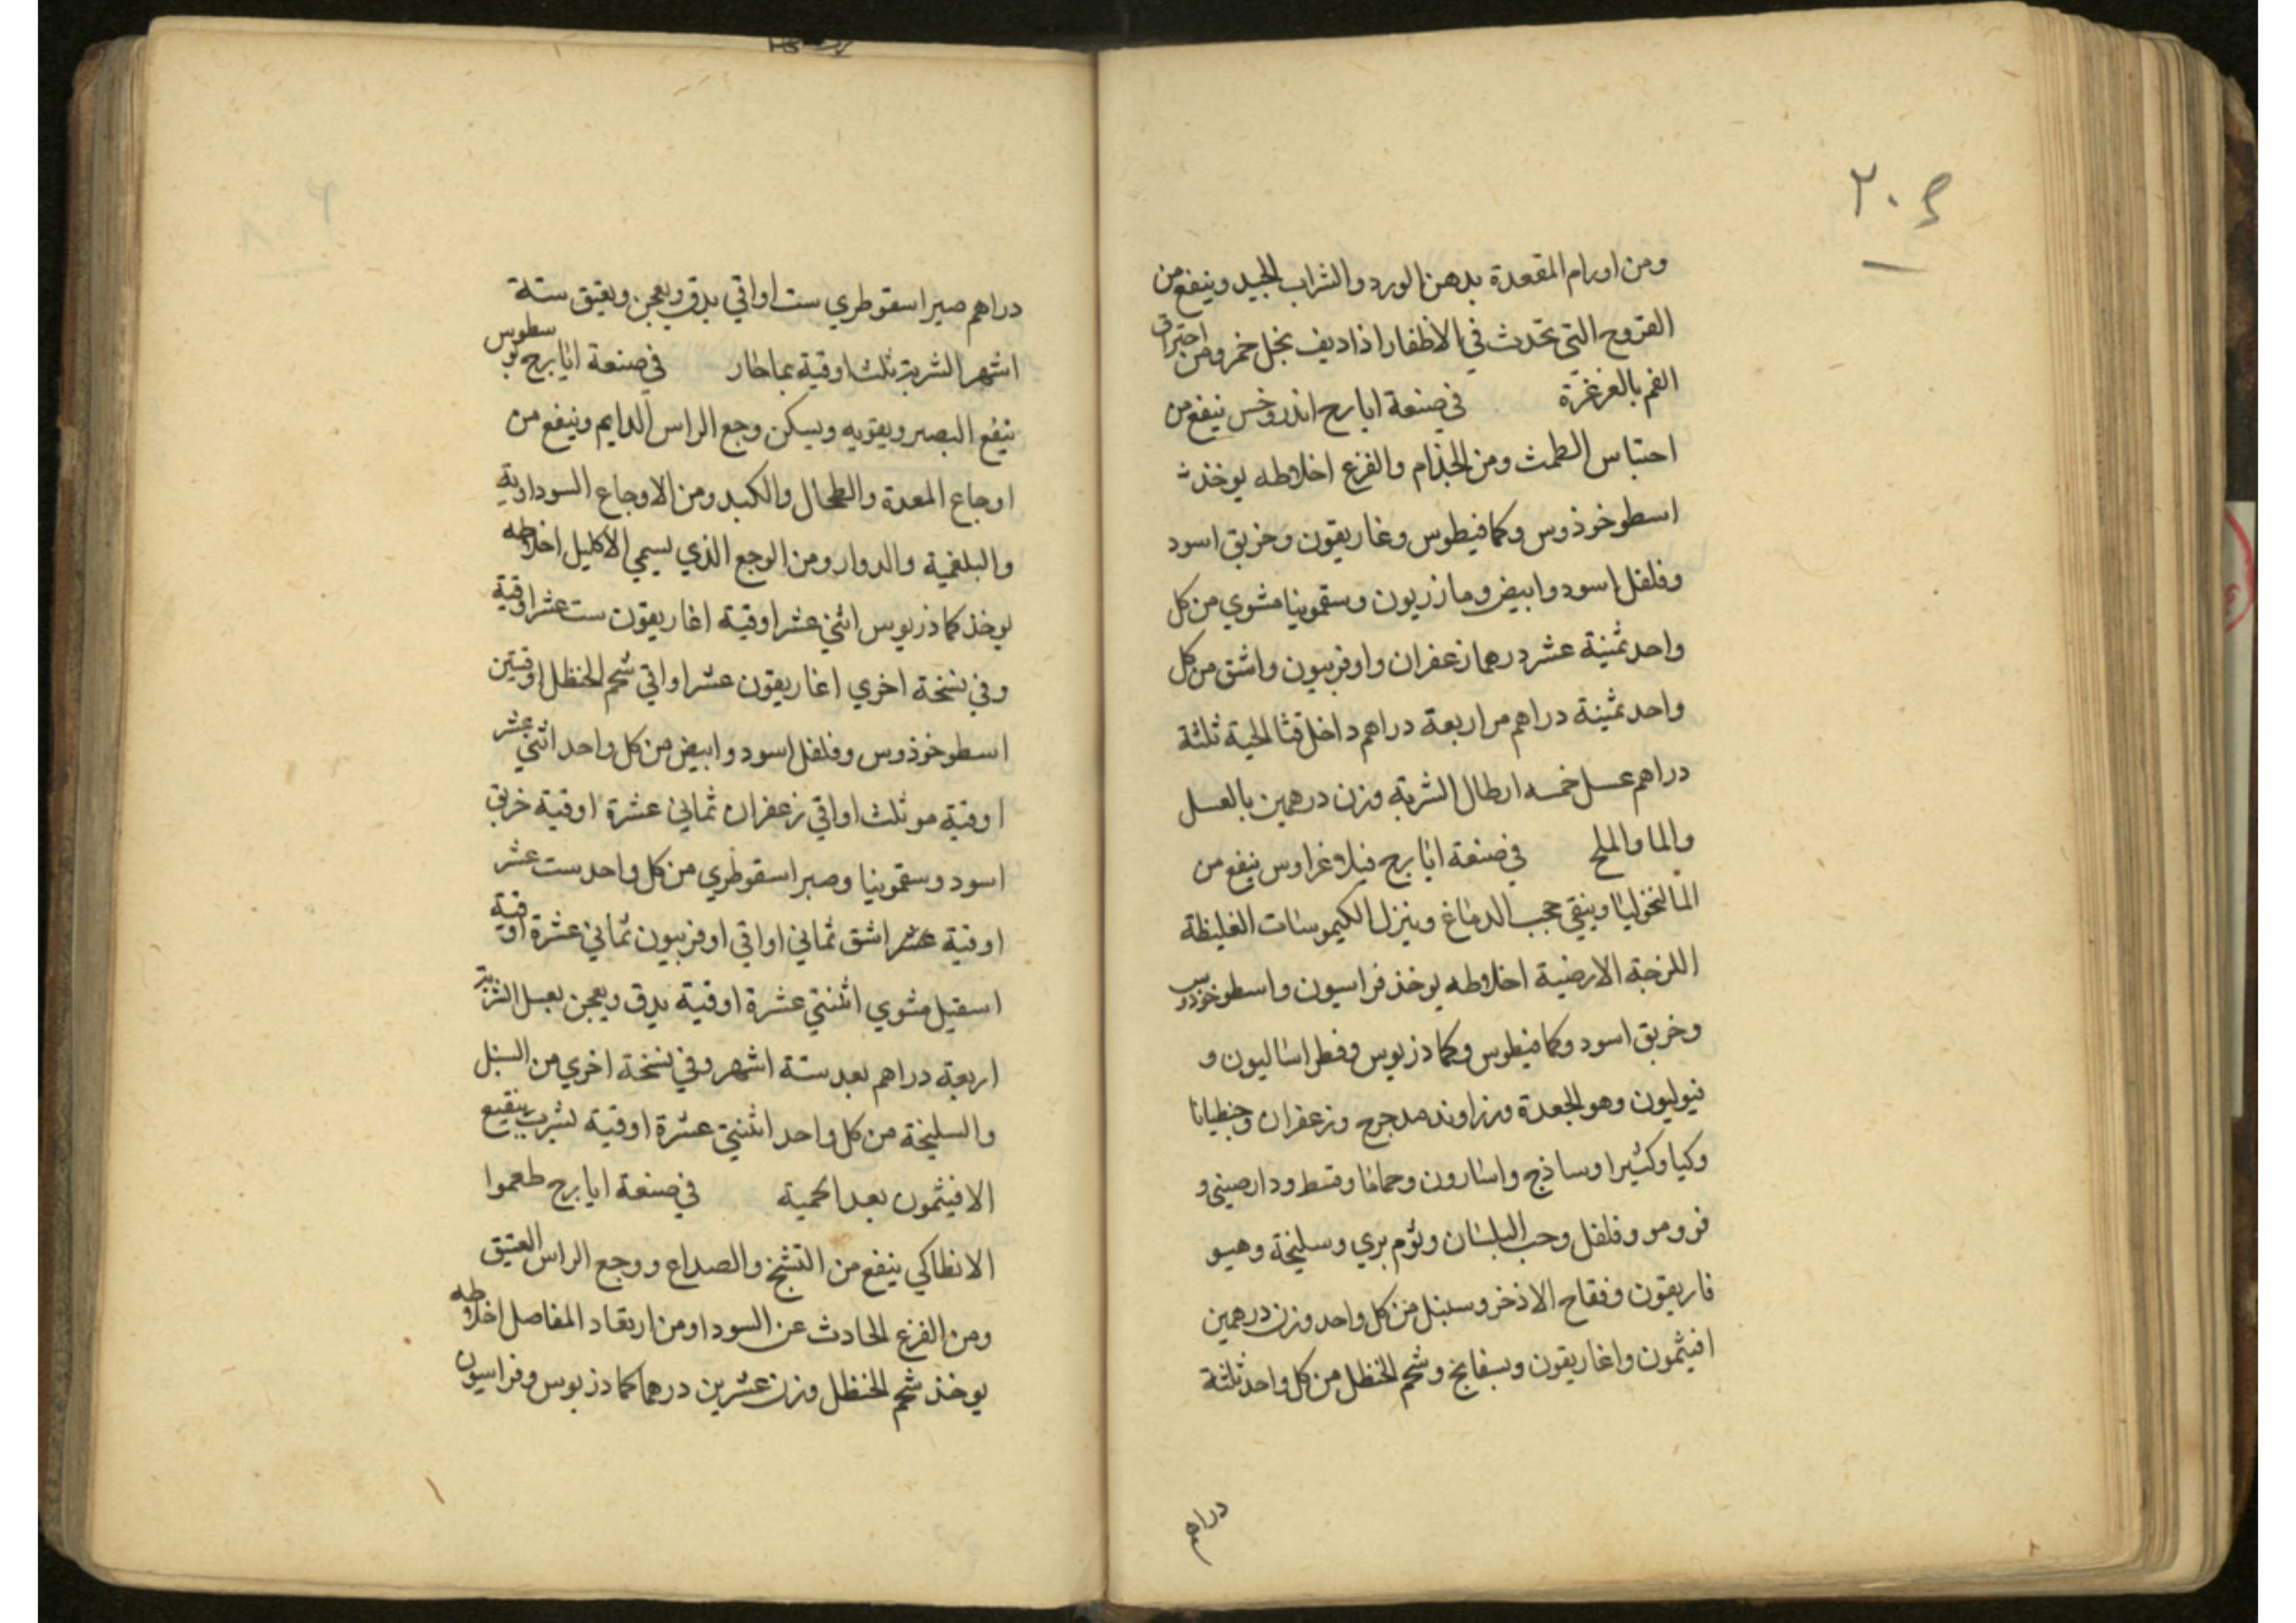 ٢٠٤
ومن اورام المقعدة بدهن الورد والشراب الجيد وينفع من
القروح التي تحدث في الاظفار اذا ديف بخل خمر ومن احتراق
الفم بالغرغرة في صنعة ايارج اندروخس ينفع من
احتباس الطمث ومن الجذام والفزع اخلاطه يوخذ
اسطوخوذوس وكمافيطوس وغاريقون وخربق اسود
وفلفل اسود وابيض ومازريون وسقمونيا مشوي من كل
واحد ثمنية عشر درهما زعفران واوفربيون واشق من كل
واحد ثمنية دراهم مر اربعة دراهم داخل قثا الحية ثلثة
دراهم عسل خمسه ارطال الشربة وزن درهمين بالعسل
والما والملح في صنعة ايارج فيلاوغراوس ينفع من
المالنخوليا وينقي حجب الدماغ وينزل الكيموسات الغليظة
اللزجة الارضية اخلاطه يوخذ فراسيون واسطوخودوس
وخربق اسود وكمافيطوس وكماذريوس وفطراساليون و
فيوليون وهو الجعدة وزراوند مدحرج وزعفران وجنطيانا
وكيا وكثيرا وساذج واسارون وحماما وقسط ودارصيني و
فو ومو وفلفل وحب البلسان وثوم بري وسليخة وهيو
فاريقون وفقاح الاذخر وسنبل من كل واحد وزن درهمين
افيثمون واغاريقون وبسفايج وشحم الحنظل من كل واحد ثلثة
دراهم
دراهم صبر اسقوطري ست اواقي يدق ويعجن ويعتق ستة
اشهر الشربة ثلث اوقية بما حار في صنعة ايارج لوسطوس
ينفع البصر ويقويه ويسكن وجع الراس الدايم وينفع من
اوجاع المعدة والطحال والكبد ومن الاوجاع السوداوية
والبلغمية والدوار ومن الوجع الذي يسمي الاكليل اخلاطه
يوخذ كماذريوس اثني عشر اوقية اغاريقون ست عشر اوقية
وفي نسخة اخري اغاريقون عشر اواقي شحم الحنظل اوقيتين
اسطوخوذوس وفلفل اسود وابيض من كل واحد اثني عشر
اوقية مو ثلث اواقي زعفران ثماني عشرة اوقية خربق
اسود وسقمونيا وصبر اسقوطري من كل واحد ست عشر
اوقية عشر اشق ثماني اواقي اوفربيون ثماني عشرة اوقية
اسقيل مشوي اثنتي عشرة اوقية يدق ويعجن بعسل الشربة
اربعة دراهم بعد ستة اشهر وفي نسخة اخري من السنبل
والسليخة من كل واحد اثنتي عشرة اوقية يشرب بنقيع
الافيثمون بعد الحمية في صنعة ايارج طعموا
الانطاكي ينفع من التشنج والصداع ووجع الراس العتيق
ومن الفزع الحادث عن السودا ومن ارتعاد المفاصل اخلاطه
يوخذ شحم الحنظل وزن عشرين درهما كماذريوس وفراسيون